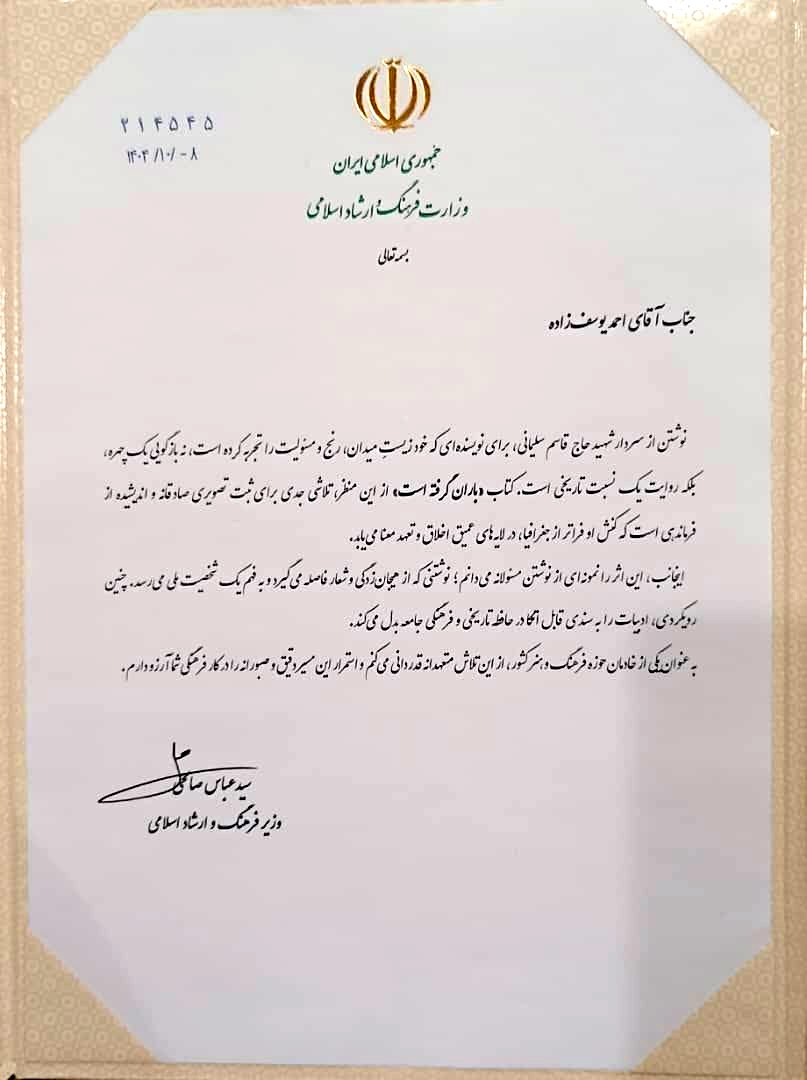 ۲۱۴۵۴۵
۱۴۰۴/۱۰/-۸
جمهوری اسلامی ایران
وزارت فرهنگ و ارشاد اسلامی
بسمه تعالی
جناب آقای احمد یوسف‌زاده
نوشتن از سردار شهید حاج قاسم سلیمانی، برای نویسنده‌ای که خود زیستِ میدان، رنج و مسئولیت را تجربه کرده است، نه بازگویی یک چهره،
بلکه روایت یک نسبت تاریخی است. کتاب «باران گرفته است» از این منظر، تلاشی جدی برای ثبت تصویری صادقانه و اندیشیده از
فرماندهی است که کنش او فراتر از جغرافیا، در لایه‌های عمیق اخلاق و تعهد معنا می‌یابد.
اینجانب، این اثر را نمونه‌ای از نوشتن مسئولانه می‌دانم؛ نوشتنی که از هیجان‌زدگی و شعار فاصله می‌گیرد و به فهم یک شخصیت ملی می‌رسد. چنین
رویکردی، ادبیات را به سندی قابل اتکا در حافظه تاریخی و فرهنگی جامعه بدل می‌کند.
به عنوان یکی از خادمان حوزه فرهنگ و هنر کشور، از این تلاش متعهدانه قدردانی می‌کنم و استمرار این مسیر دقیق و صبورانه را در کار فرهنگی شما آرزو دارم.
سید عباس صالحی
وزیر فرهنگ و ارشاد اسلامی